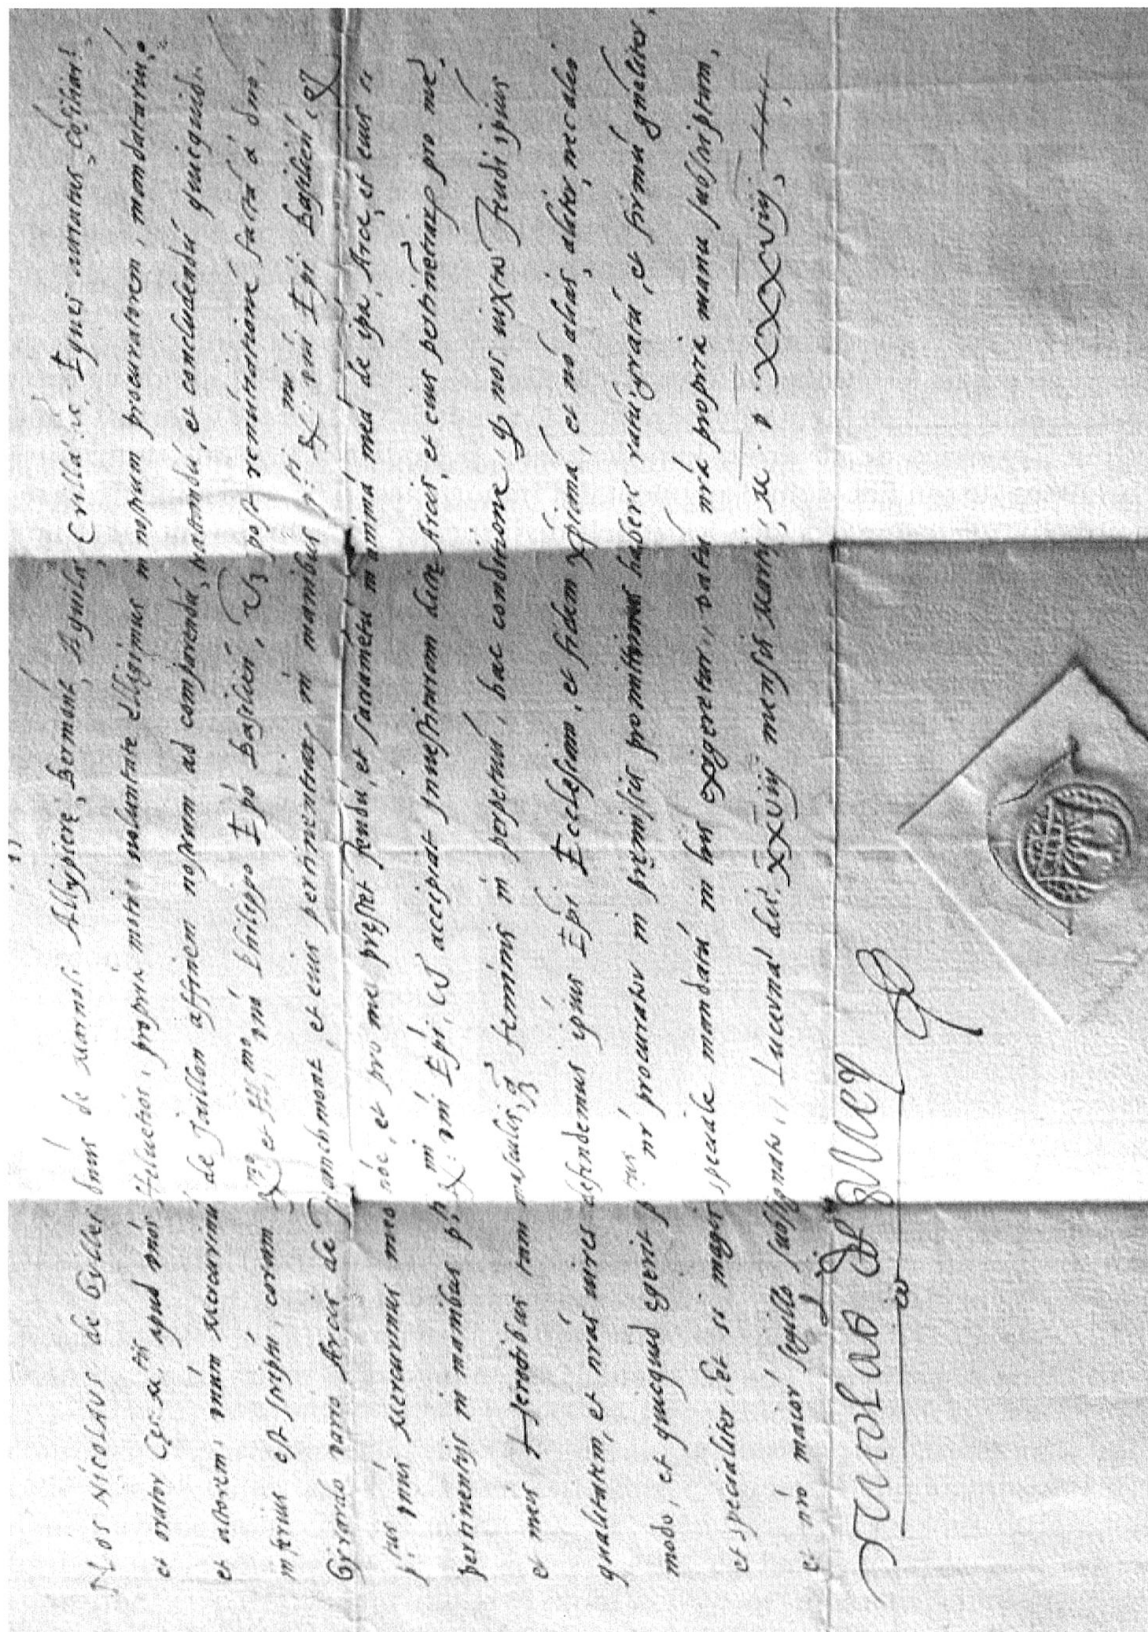 Nos Nicolaus de Gyller dnús de Marnol Alligpierè, Bermont, Aguilà, Crillà
et orator Ces. M.tis apud dnos Heluetios, propria motu voluntate Elligimus in nostrum procuratorem, mandatariũ
et actorem, dnúm Mercurinú de Jaillon affinem nostrum ad comparendú, et concludendú quicquid
inferius est scriptú, coram R.mo et Ill.mo dnó Philippo Epó Basilien, Vz post renúciationé factá à dno,
Gerardo Arcis de et eius pertinentiar, in manibus R.mi dni Epi Basilien, q
dnús Mercurinus meo nóe, et pro me prestet feudú, et sacrametú in animá meá de ipa Arce, et eius
pertinentijs in manibus R.mi dni Epi, Vt accipiat Inuestituram dicte Arcis, et eius pertinetiar pro me,
et meis Heredibus tam masculis, q feminis in perpetuú, hac conditione, q nos iuxta feudi ipius
qualitatem, et nras vires defendemus ipius Epi Ecclesiam, et fidem xpianá, et nó alias, aliter, nec alio
modo, et quicquid egerit p.tus nr procurator in premissis promittimus habere ratú, gratú, et firmú gnaliter
et specialiter, Et si magis speciale mandatú in his exigeretur, datú nrá propria manu subscriptum,
et nro maiori Sigillo subsignatú, Lucernà diè. XXViij mensis Martij, M D XXXXViij,
Nicolao De Gyller